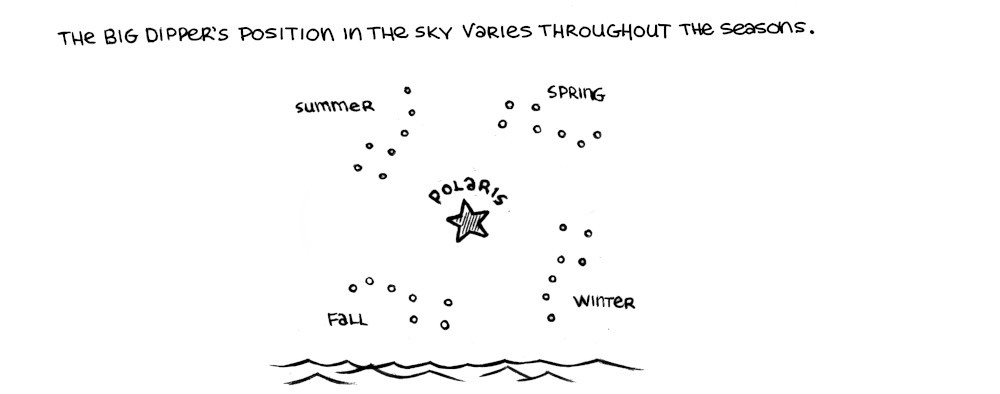 THE BIG DIPPER'S POSITION IN THE SKY VARIES THROUGHOUT THE SEASONS.
SUMMER
SPRING
POLARIS
WINTER
FALL